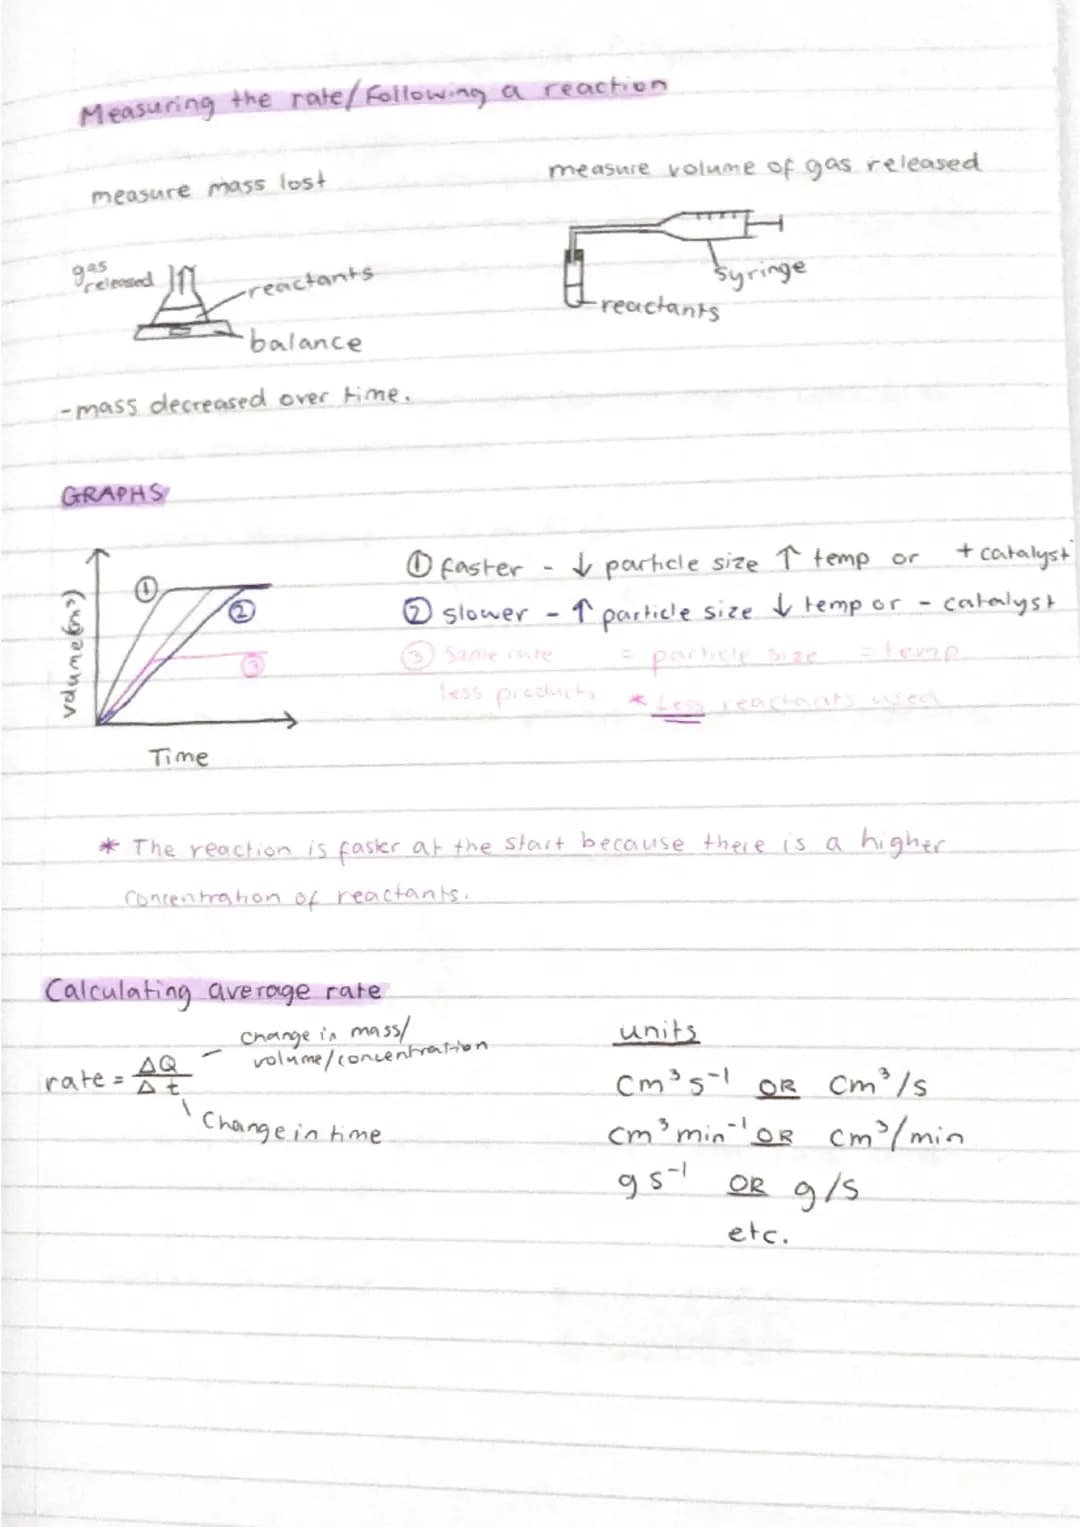 Measuring the rate/Following a reaction
measure mass lost
measure volume of gas released
gas
released
reactants
balance
syringe
reactants
-mass decreased over time.
GRAPHS
volume
Time
① ② ③
① faster - ↓ particle size ↑ temp or + catalyst
② slower - ↑ particle size ↓ temp or - catalyst
③ Same rate = particle size = temp
less products * Less reactants used
* The reaction is faster at the start because there is a higher
concentration of reactants.
Calculating average rate
rate = ΔQ / Δt
change in mass/
volume/concentration
Change in time
units
cm³ s⁻¹ OR cm³/s
cm³ min⁻¹ OR cm³/min
g s⁻¹ OR g/s
etc.